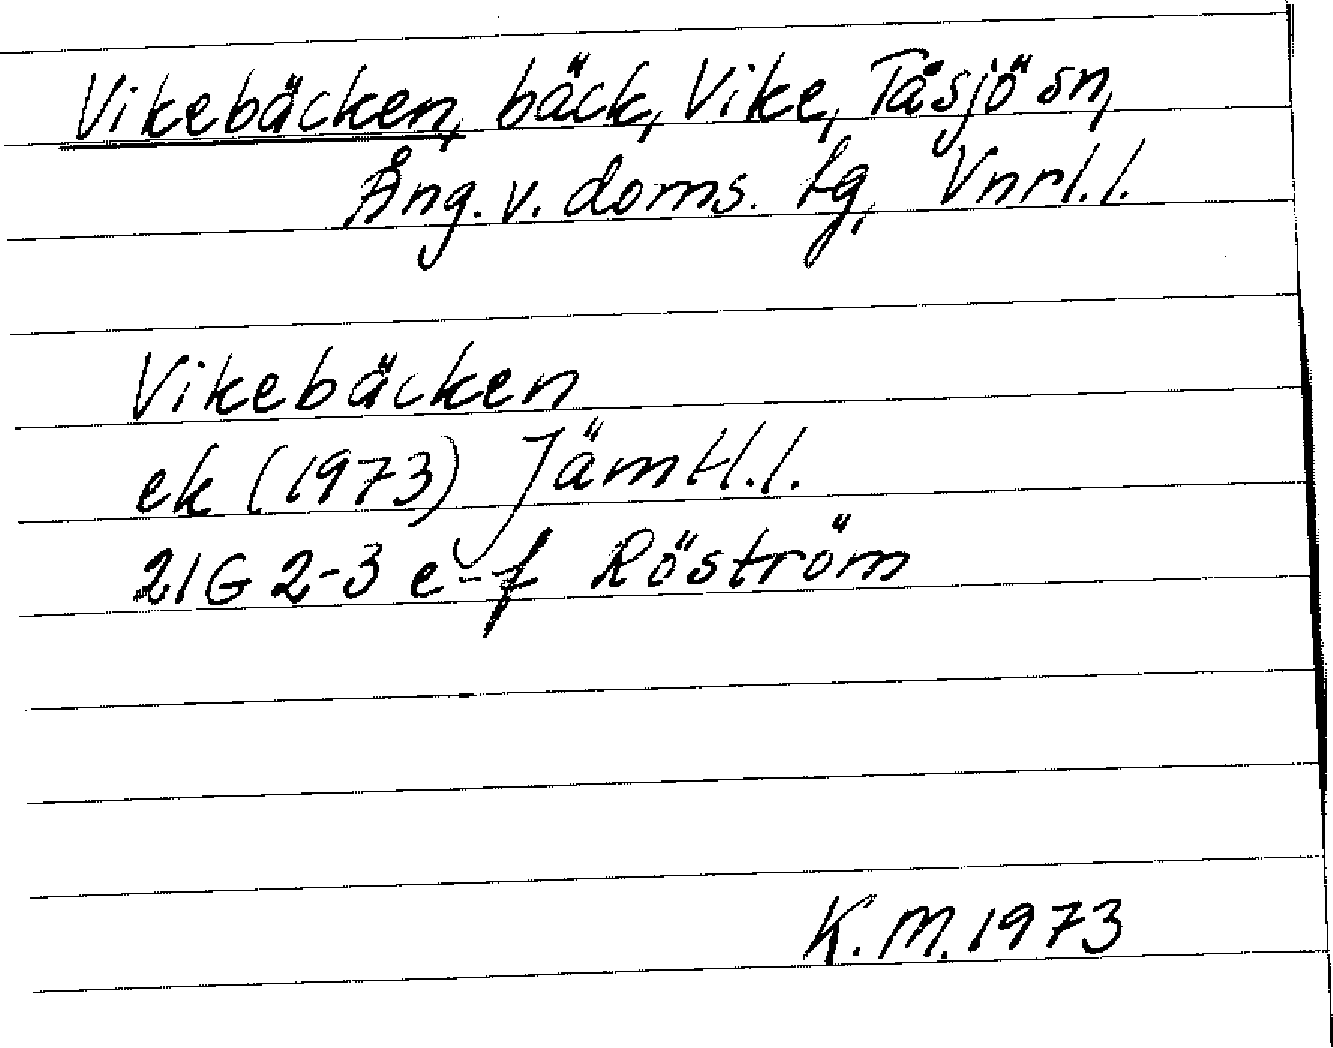 Vikebäcken, bäck, Vike, Tåsjö sn,
Ång. v. doms. tg, Vnrl.l.
Vikebäcken
ek (1973) Jämtl.l.
21G 2-3 e-f Röström
K.M. 1973